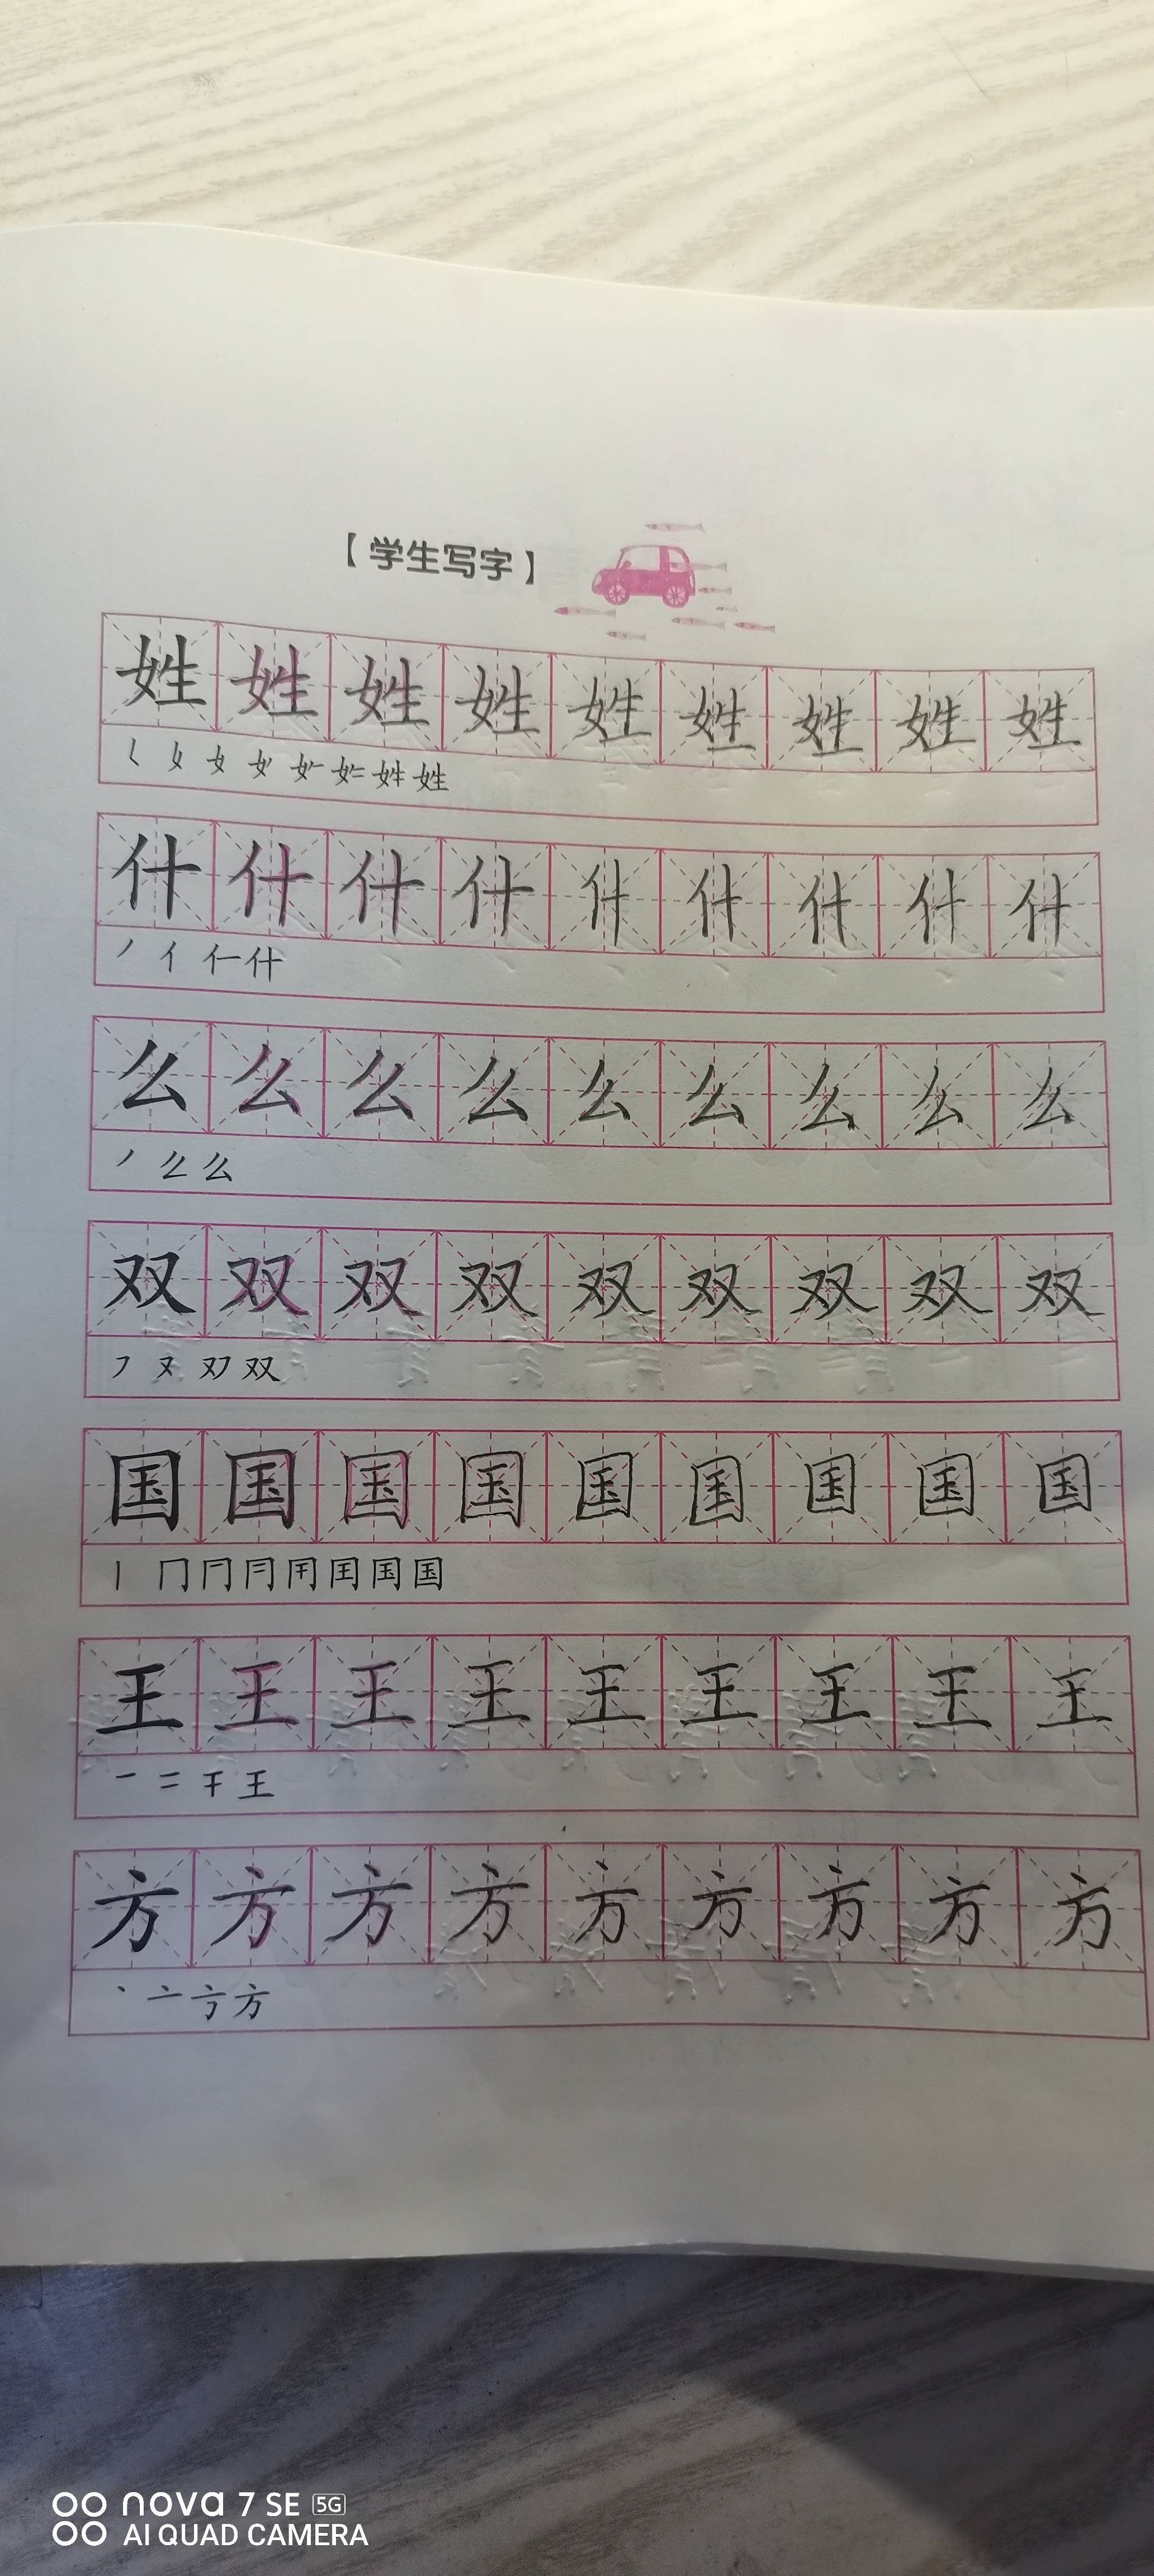 【学生写字】
姓 姓 姓 姓 姓 姓 姓 姓 姓
姓
什 什 什 什 什 什 什 什 什
丿 亻 仁 什
么 么 么 么 么 么 么 么 么
丿 么
双 双 双 双 双 双 双 双 双
又 双
国 国 国 国 国 国 国 国 国
丨 冂 国
王 王 王 王 王 王 王 王 王
一 二 干 王
方 方 方 方 方 方 方 方 方
丶 亠 方
nova 7 SE 5G
AI QUAD CAMERA